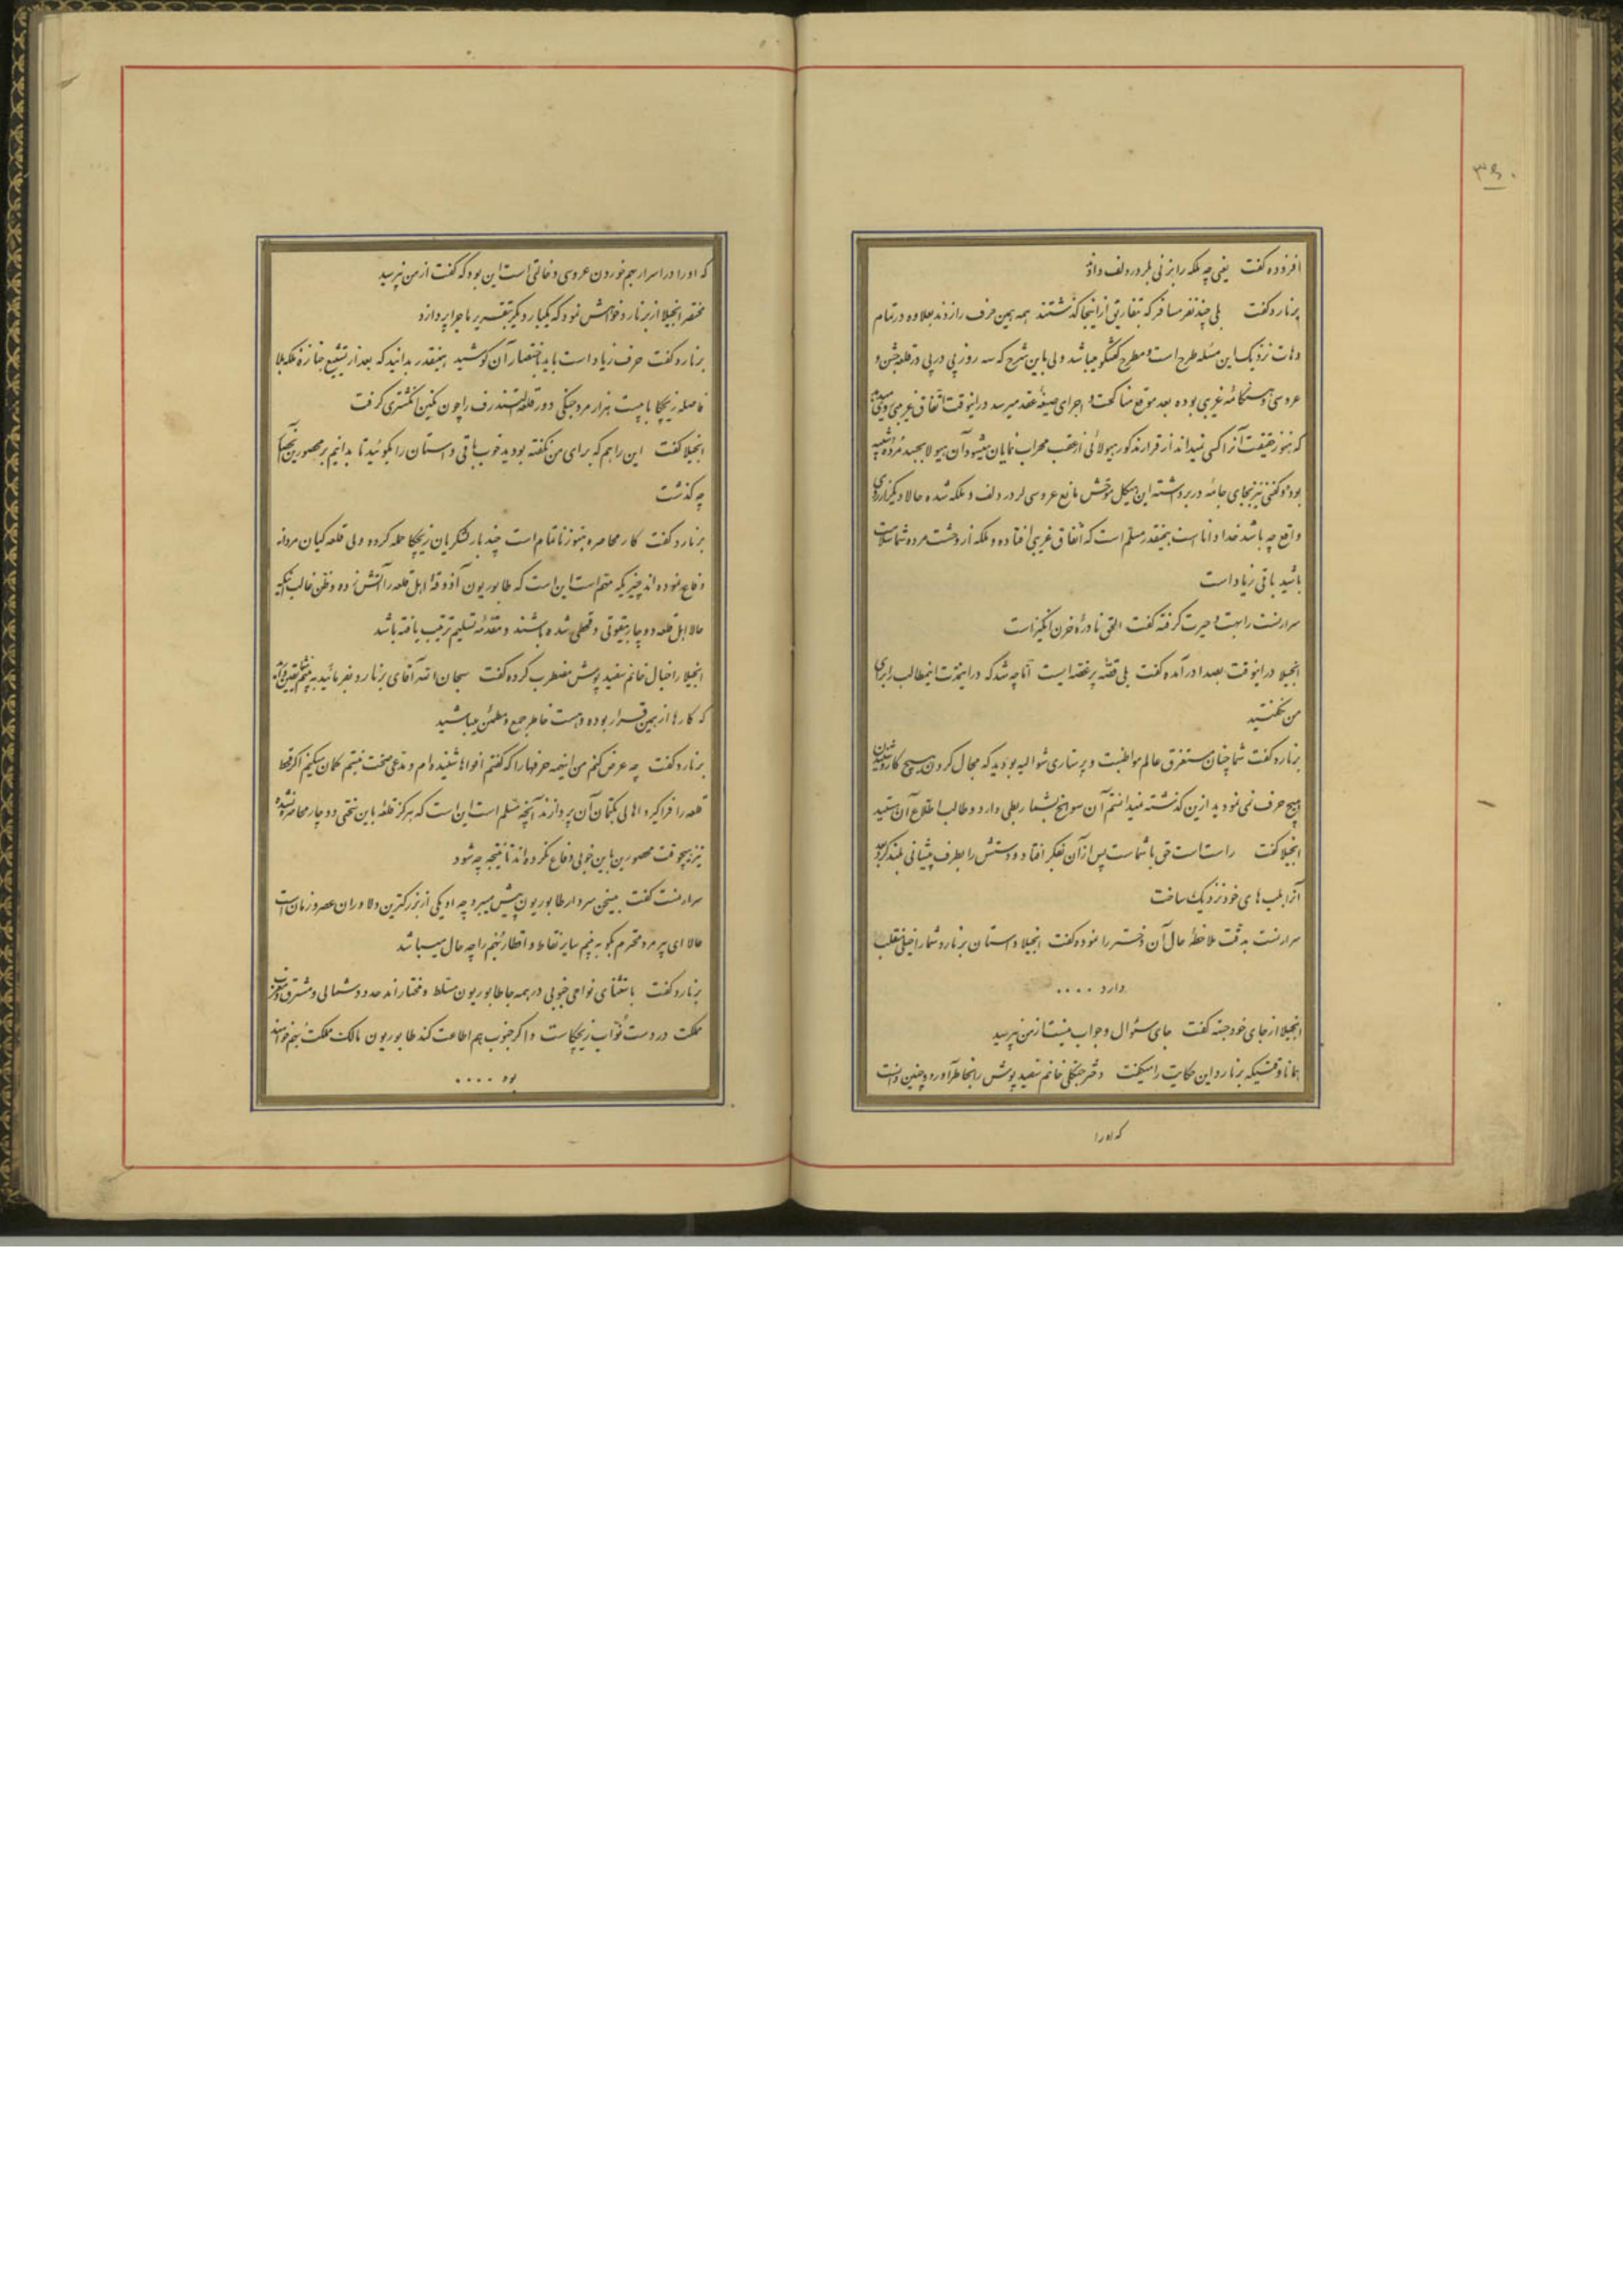 ۳۵۰
افزوده گفت یعنی چه ملکه را بزنی بلردردلف داد
برنارد گفت بلی چند نفر مسافر که بتفاریق از اینجا گذشتند همه همین حرف را زدند بعلاوه در تمام
دهات نزدیک این مسئله طرح است و مطرح گفتگو میباشد ولی باین شرح که سه روز پی در پی در قلعه جشن و
عروسی و هنگامهٔ غریبی بوده بعد موقع مناکحت و اجرای صیغهٔ عقد میرسد در اینوقت اتفاق غریبی
که هنوز حقیقت آنرا کسی نمیداند از قرار مذکور هیولائی از عقب محراب نمایان میشود آن هیولا بجسد مرده شبیه
بوده و کفنی نیز بجای جامه در بر داشته این هیکل موحش مانع عروسی لردردلف و ملکه شده حالا دیگر
واقع چه باشد خدا داناست همینقدر مسلم است که اتفاق غریبی افتاده و ملکه از وحشت مرده شما سلامت
باشید باقی زیاد است
سرارنست را بهت و حیرت گرفته گفت الحق نادرهٔ حزن انگیز است
انجیلا در اینوقت بصدا درآمده گفت بلی قصهٔ پر غصه ایست اما چه شد که در اینمدت اینمطالب را برای
من نگفتید
برنارد گفت شما چنان مستغرق عالم مواظبت و پرستاری شوالیه بودید که مجال کردن هیچ کار و شنیدن
هیچ حرف نمی نمودید ازین گذشته نمیدانستم آن سوانح بشما ربطی دارد و طالب اطلاع آن هستید
انجیلا گفت راست است حق با شماست پس از آن بفکر افتاد و دستش را بطرف پیشانی بلند کرد
آنرا بلب های خود نزدیک ساخت
سرارنست بدقت ملاحظهٔ حال آن دختر را نموده گفت انجیلا داستان برنارد شما را خیلی منقلب
دارد ....
انجیلا از جای خود جسته گفت جای سئوال و جواب نیست از من نپرسید
همانا وقتیکه برنارد این حکایت را میگفت دختر جنگلی خانم سفید پوش را بخاطر آورد و چنین دانست
که او را
که او را در اسرار بهم خوردن عروسی دخالتی است این بود که گفت از من نپرسید
مختصر انجیلا از برنارد خواهش نمود که یکبار دیگر بتقریر ماجرا پردازد
برنارد گفت حرف زیاد است باید باختصار آن کوشید همینقدر بدانید که بعد از تشییع جنازهٔ ملکه بلا
فاصله زیچکا با بیست هزار مرد جنگی دور قلعهٔ التندرف را چون نگین انگشتری گرفت
انجیلا گفت این را هم که برای من نگفته بودید خوب باقی داستان را بگوئید تا بدانیم بر محصورین
چه گذشت
برنارد گفت کار محاصره هنوز ناتمام است چند بار لشکریان زیچکا حمله کرده ولی قلعه گیان مردانه
دفاع نموده اند چیزیکه متهم است این است که طابوریون آذوقهٔ اهل قلعه را آتش زده و ظن غالب اینکه
حالا اهل قلعه دوچار بیقوتی و قحطی شده باشند و مقدمهٔ تسلیم ترتیب یافته باشد
انجیلا را خیال خانم سفید پوش مضطرب کرده گفت سبحان الله آقای برنارد بفرمائید ببینم
که کارها از همین قرار بوده و هست خاطر جمع و مطمئن میباشید
برنارد گفت چه عرض کنم من اینهمه حرفها را که گفتم افواها شنیده ام و مدعی صحت نیستم گمان میکنم اگر قحط
قلعه را فراگیرد اهالی بکتمان آن پردازند آنچه مسلم است این است که هرگز قلعه باین سختی دوچار محاصره نشده
نیز هیچوقت محصورین باین خوبی دفاع نکرده اند تا نتیجه چه شود
سرارنست گفت بیسخن سردار طابوریون پیش میبرد چه او یکی از بزرگترین دلاوران عصر و زمان است
حالا ای پیرمرد محترم بگو ببینم سایر نقاط و اقطار بهم را چه حال میباشد
برنارد گفت باستثنای نواحی جنوبی در همه جا طابوریون مسلط و مختاراند حدود شمالی و مشرق و مغرب
مملکت در دست نواب زیچکاست و اگر جنوب هم اطاعت کند طابوریون مالک مملکت بهم خواهند
بود ....